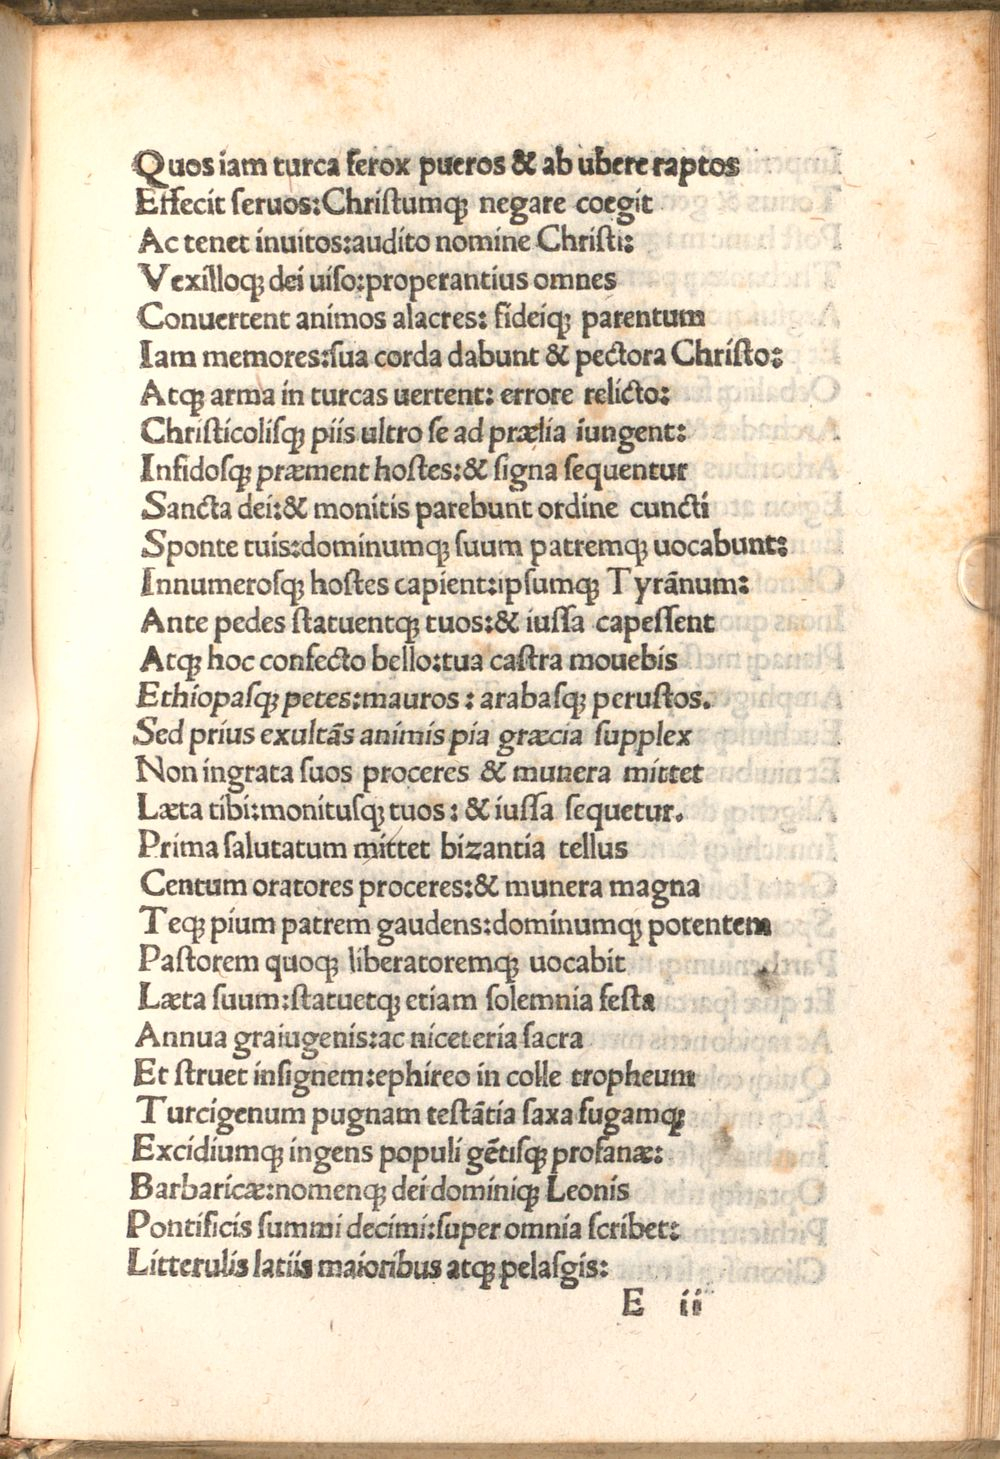 Quos iam turca ferox pueros & ab ubere raptos
Effecit ſeruos:Chriſtumqꝫ negare coegit
Ac tenet inuitos:audito nomine Chriſti:
Vexilloqꝫ dei uiſo:properantius omnes
Conuertent animos alacres: fideiqꝫ parentum
Iam memores:ſua corda dabunt & pectora Chriſto:
Atqꝫ arma in turcas uertent: errore relicto:
Chriſticoliſqꝫ piis ultro ſe ad prælia iungent:
Infidoſqꝫ præment hoſtes:& ſigna ſequentur
Sancta dei:& monitis parebunt ordine cuncti
Sponte tuis:dominumqꝫ ſuum patremqꝫ uocabunt:
Innumeroſqꝫ hoſtes capient:ipſumqꝫ Tyrānum:
Ante pedes ſtatuentqꝫ tuos:& iuſſa capeſſent
Atqꝫ hoc confecto bello:tua caſtra mouebis
Ethiopaſqꝫ petes:mauros: arabaſqꝫ peruſtos.
Sed prius exultās animis pia græcia ſupplex
Non ingrata ſuos proceres & munera mittet
Læta tibi:monituſqꝫ tuos: & iuſſa ſequetur.
Prima ſalutatum mittet bizantia tellus
Centum oratores proceres:& munera magna
Teqꝫ pium patrem gaudens:dominumqꝫ potentem
Paſtorem quoqꝫ liberatoremqꝫ uocabit
Læta ſuum:ſtatuetqꝫ etiam ſolemnia feſta
Annua graiugenis:ac niceteria ſacra
Et ſtruet inſignem:ephireo in colle tropheum
Turcigenum pugnam teſtātia ſaxa fugamqꝫ
Excidiumqꝫ ingens populi gētiſqꝫ profanæ:
Barbaricæ:nomenqꝫ dei dominiqꝫ Leonis
Pontificis ſummi decimi:ſuper omnia ſcribet:
Litterulis latiis maioribus atqꝫ pelaſgis:
E ii